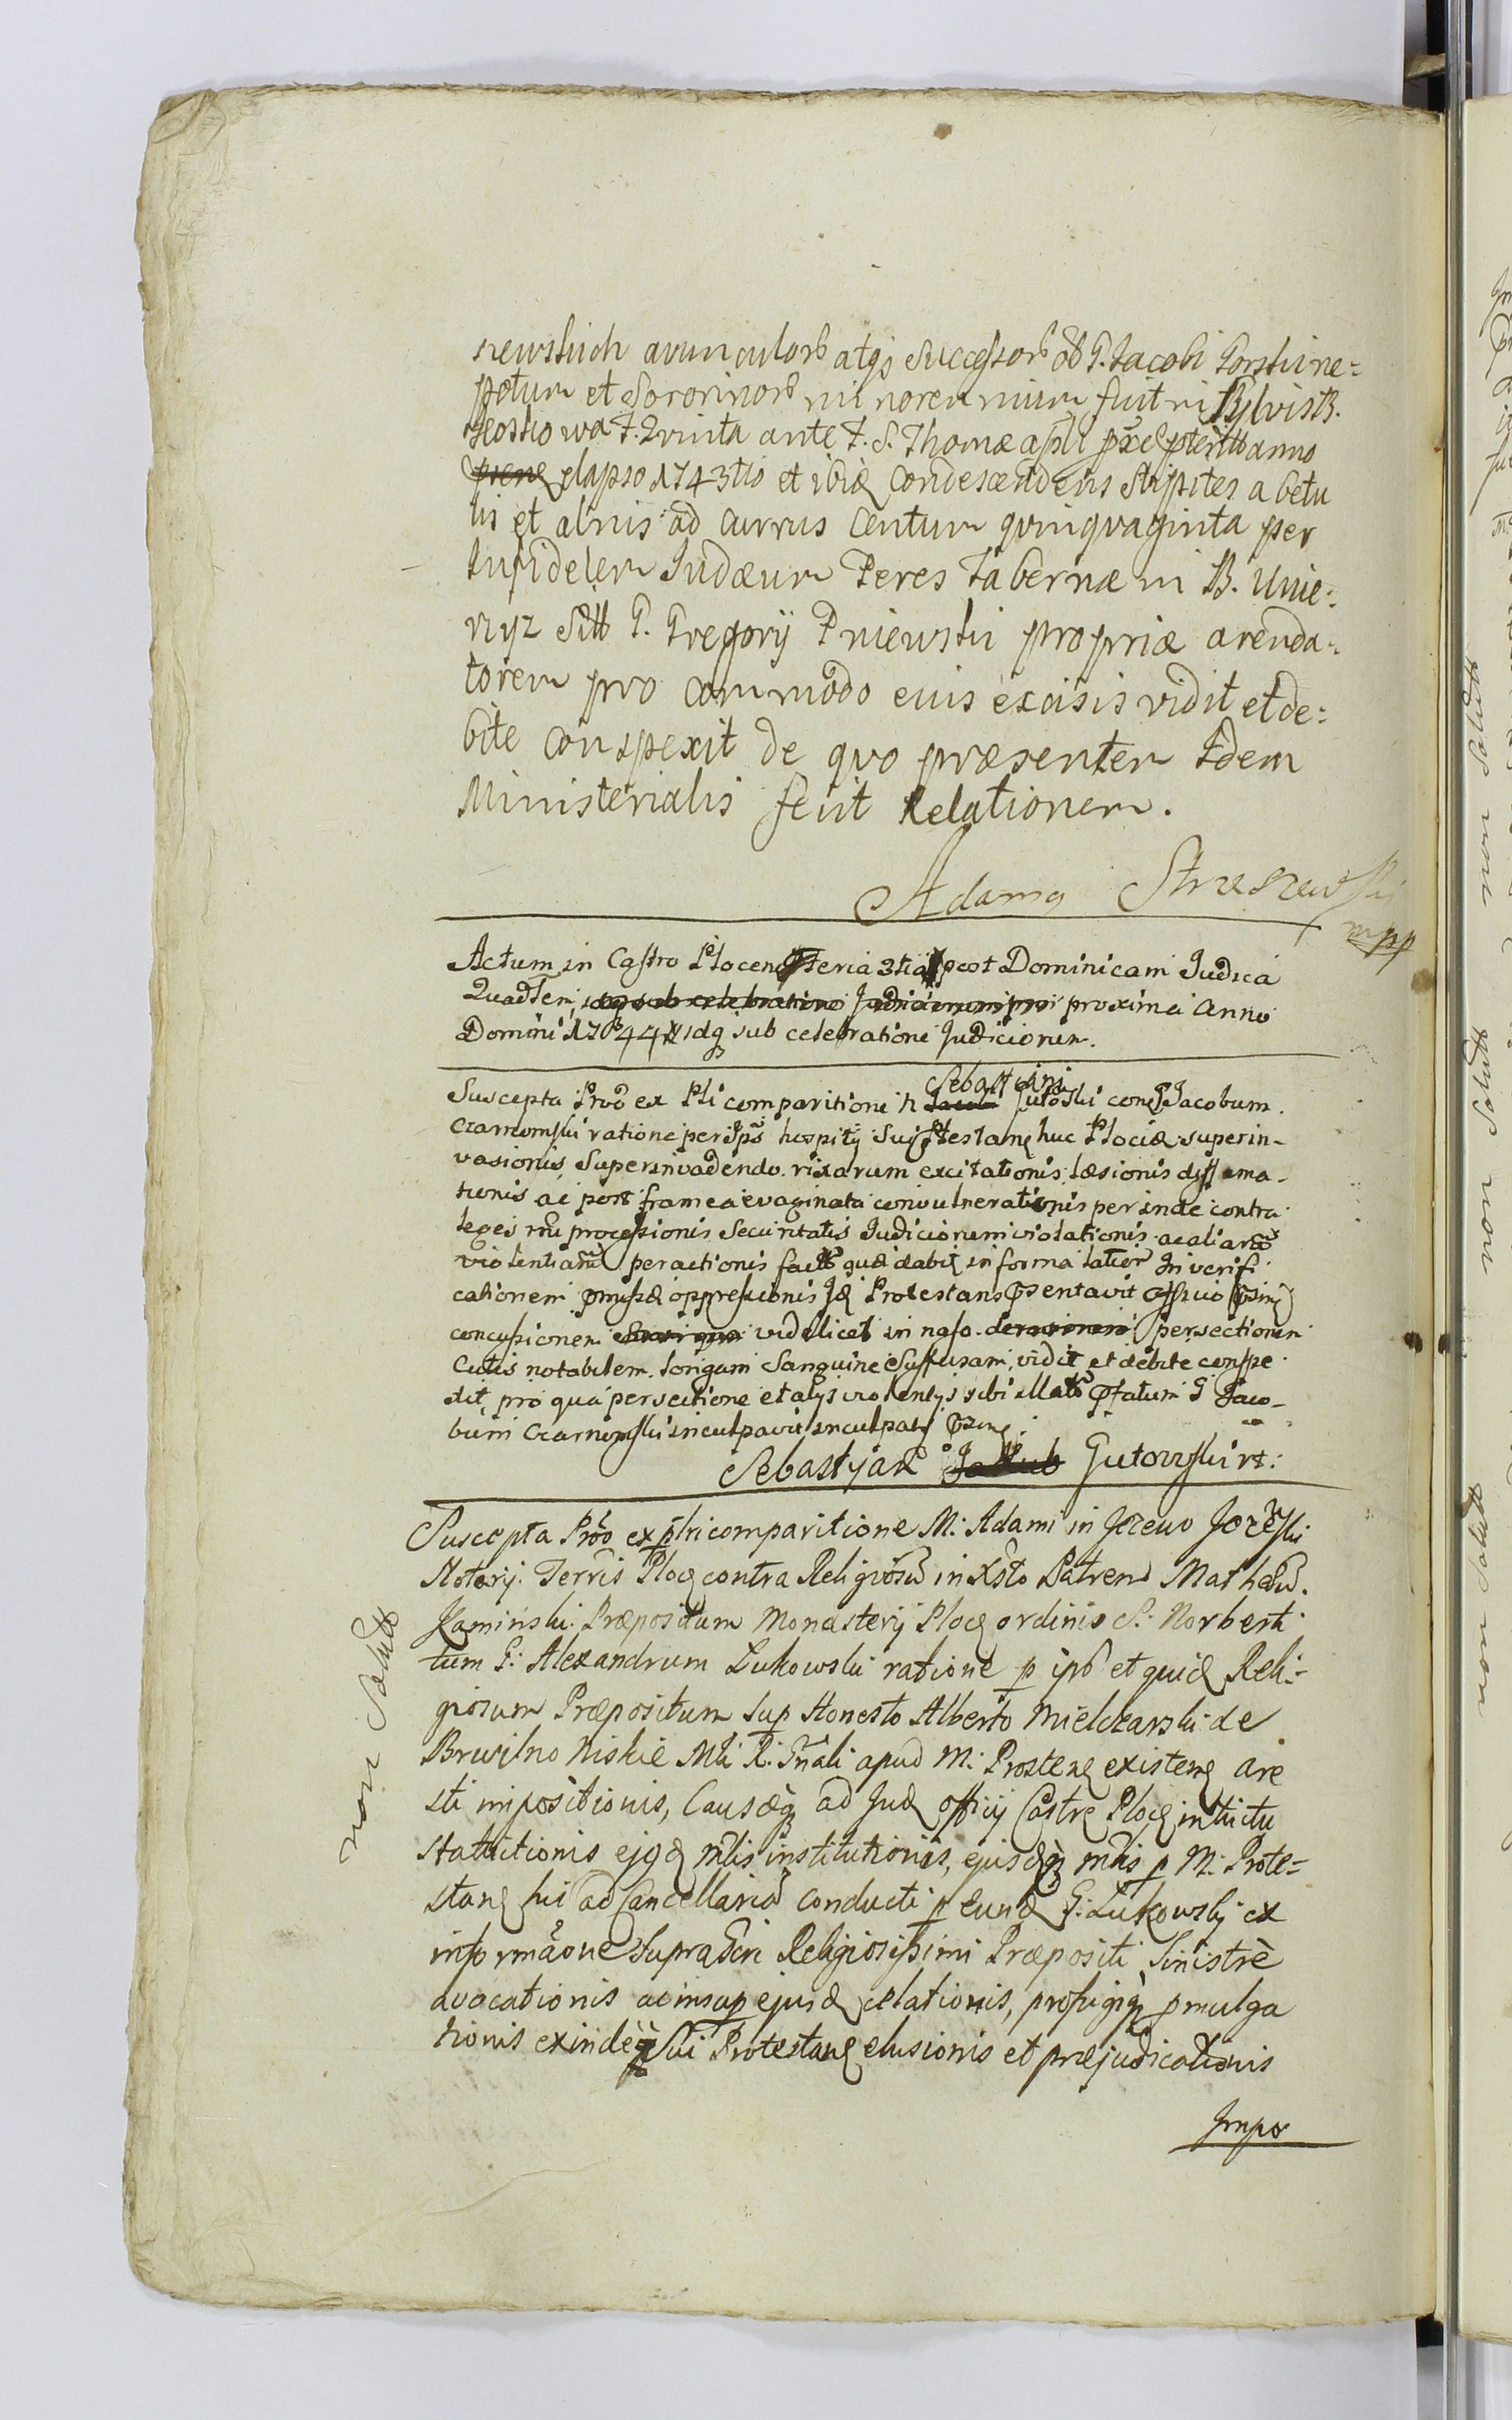 newskich avunculorũ atqȝ Successorũ olĩ G. Jacobi Gorski ne=
potum et Sororinorũ minorennium fuit in Sylvis B.
Kostrowa F. Qvinta ante F. S. Thomæ apli pxe ptertto anno
elapso 1743tio et ibiq condescendens Stipites a betu
lis et alnis ad currus Centum qvinqvaginta per
Infidelem Judæum Peres Tabernæ in B. Unie=
ryz Sitt G. Gregorij Pniewski propriæ arenda=
torem pro commodo eius excisis vidit et de=
bite conspexit de qvo præsentem Idem
Ministerialis fecit Relationem.
Adamq Strzeszewski
mpp
Actum in Castro Plocenq Feria 3tia post Dominicam Judica
Quadlem, idq sub celebratione Judiciorum pro proxima Anno
Domini 1744 idq sub celebratione Judiciorum.
Sebastiani
Suscepta Prõo ex Pli comparitione N Jacobi Gutoski conq G Jacobum
Czarnomski ratione per Ipũ hospitij Sui Ptestanq huc Plociæ superin-
vasionis, Superinvadendo rixarum excitationis læsionis diffama-
tionis ac post framea evaginata convulnerationis perinde contra
leges rñu processionis Securitatis Judiciorum violationis ac aliarũ
violentiarũ peractionis factt quæ dabit in forma latior In verifi
cationem pmissæ oppressionis Iq Protestans psentavit offcio psinq
concussionem videlicet in naso persectionem
Cutis notabilem longam Sanguine Suffusam, vidit et debite conspe
dit, pro qua persectione et alijs violentijs sibi illatt pfatum G Jaco-
bum Czarnomski inculpavit inculpatq psinq.
Sebastyan Jakub Gutowski rt:
Suscepta Prõo ex plri comparitione M: Adami in Jezewo Jezewski
Notarij Terrĩs Plocq contra Religiosũ in Xsto Patrem Mathæũ
Kaminski Præpositum Monasterij Plocq ordinis S. Norberti
tum G: Alexandrum Lukowski ratione p ipũ et quiq Reli=
giosum Præpositum Sup Honesto Alberto Mielczarski de
Brwilno Niskie Mli R. Gnali apud M: Prostenq existenq are
sti impositionis, Causæqȝ ad Judq officij Castre Plocq intuitu
Statuitionis ejqd mlis institutionis, ejusdqȝ mlis p M: Prote=
stanq hic ad Cancellariã conducti p Eunq G: Lukowski ex
informãone Supradcti Religiosissimi Præpositi Sinistrè
avocationis ac insup ejusq celationis, profugiqȝ pmulga
tionis exindèqȝ Sui Protestanq elusionis et præjudicationis
Impo
non solvit